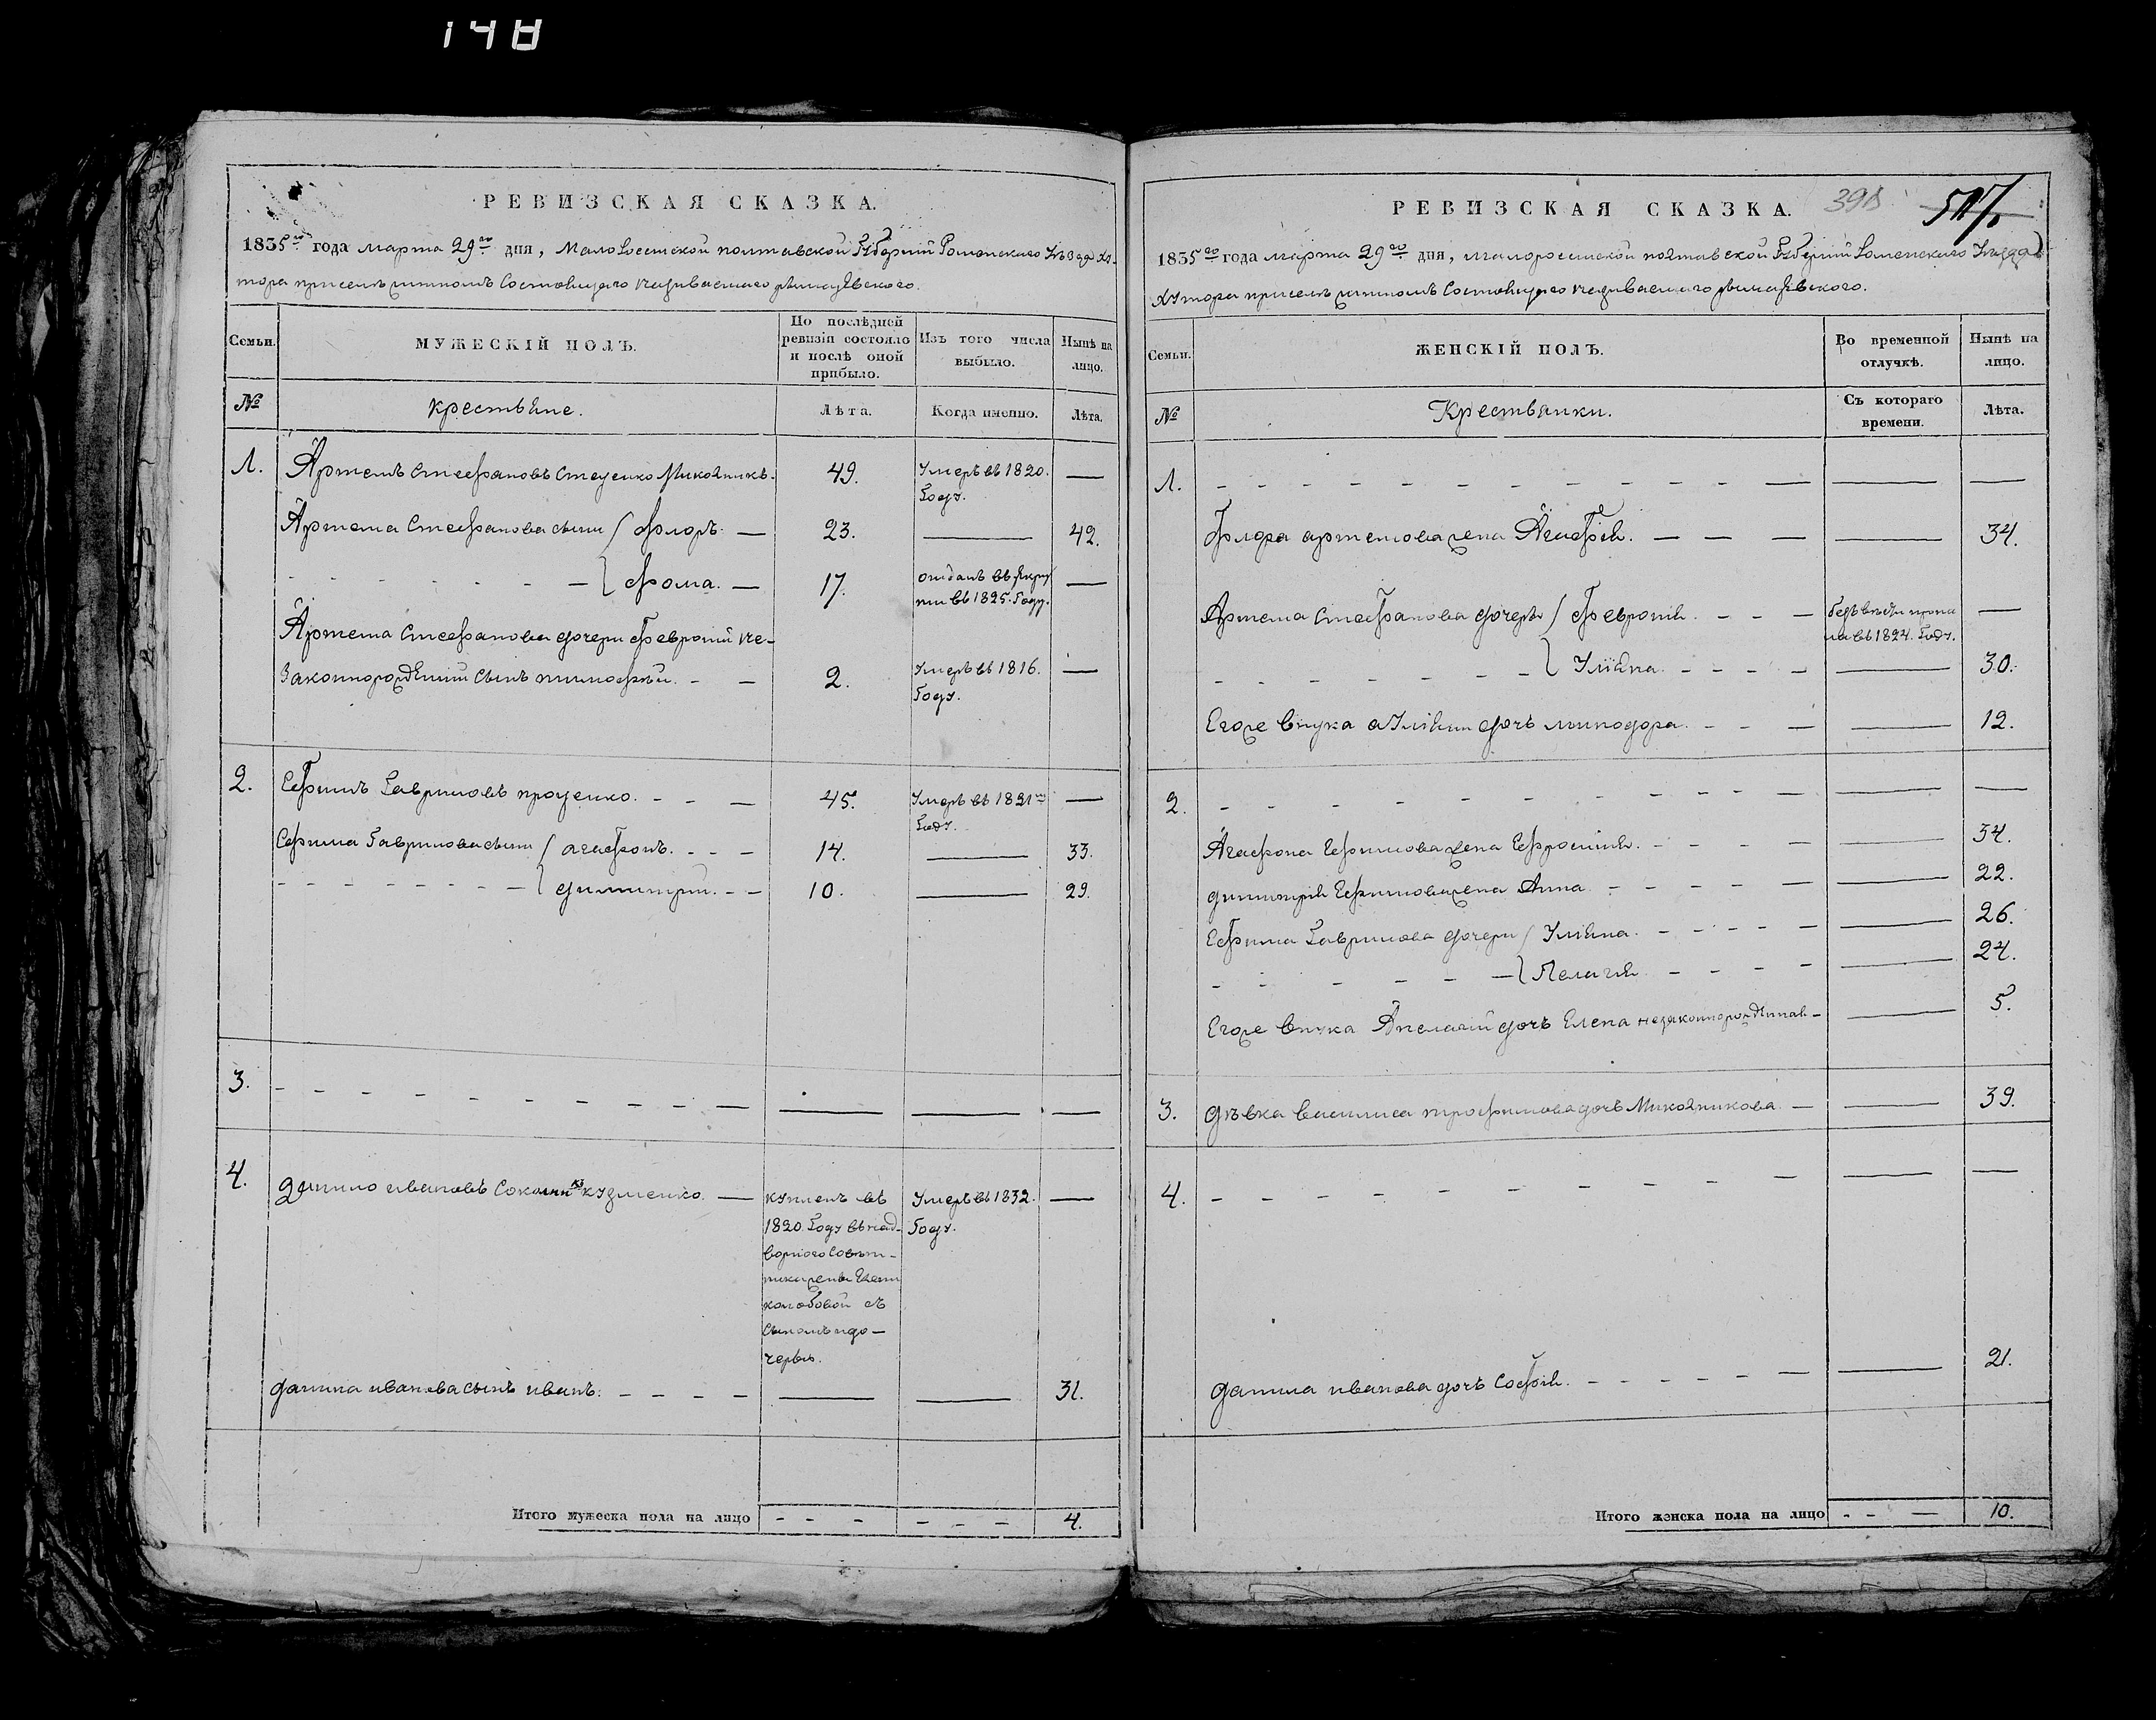 148
РЕВИЗСКАЯ СКАЗКА.
1835го года марта 29го дня, Малороссійской полтавской Губерніи Роменского Уѣзда Ху-
тора
МУЖЕСКІЙ ПОЛЪ.
Семьи.
По послѣдней ревизіи состояло и послѣ оной прибыло.
Изъ того числа выбыло.
Нынѣ на лицо.
№
крестьяне.
Лѣта.
Когда именно.
Лѣта.
1. Артемъ Стефановъ Стеценко 49. Умеръ въ 1820. Году. —
Артема Стефанова сыни Флоръ. — 23. — 42.
Фома. — 17. отданъ въ рекру
ти въ 1825. Году. —
Артема Стефанова дочери Февроніи не-
законнорожденній сынъ тимофѣй. - — 2. Умеръ въ 1816. Году. —
2. Ефимъ Гавриловъ проценко. - - — 45. Умеръ въ 1821го Году. —
Ефима Гаврилова сыни агафонъ. - - - 14. — 33.
димитрій. - - 10. — 29.
3. - - - - - - - - - — — — —
4. данило ивановъ кузменко. — купленъ въ Умеръ въ 1832. —
1820. Году въ над- Году.
ворного Совѣт-
ника жени
съ
Сыномъ и до-
черью.
данила иванова сынъ иванъ. - - - - — — 31.
Итого мужеска пола на лицо - - - - - - 4.
РЕВИЗСКАЯ СКАЗКА.
1835го года марта 29го дня, малороссійской полтавской Губерніи Роменского Уѣзда
хутора
Семьи.
ЖЕНСКІЙ ПОЛЪ.
Во временной отлучкѣ.
Нынѣ на лицо.
№
Крестьянки.
Съ котораго времени.
Лѣта.
1. - - - - - - - - - - — — —
Флора артемова жена Агафія. — — — — 34.
Артема Стефанова дочери Февронія. - - — —
въ 1824. Году.
Уліяна. - - - - — 30.
Егоже внука а Уліяни дочъ минодора. - - — — 12.
2. - - - - - - - - - - — — —
Агафона Ефимова жена Ефросинія. - - - - — 34.
димитрія Ефимова жена Анна. - - - - — 22.
Ефима Гаврилова дочери Уліяна. - - - - — 26.
Пелагія. - - - - — 24.
Егоже внука Апелагіи дочъ Елена незаконнорожденная - — 5.
3. дѣвка василиса трофимова дочъ — — 39.
4. - - - - - - - - - - — — —
данила иванова дочъ Софія. - - - - - — 21.
Итого женска пола на лицо - - — 10.